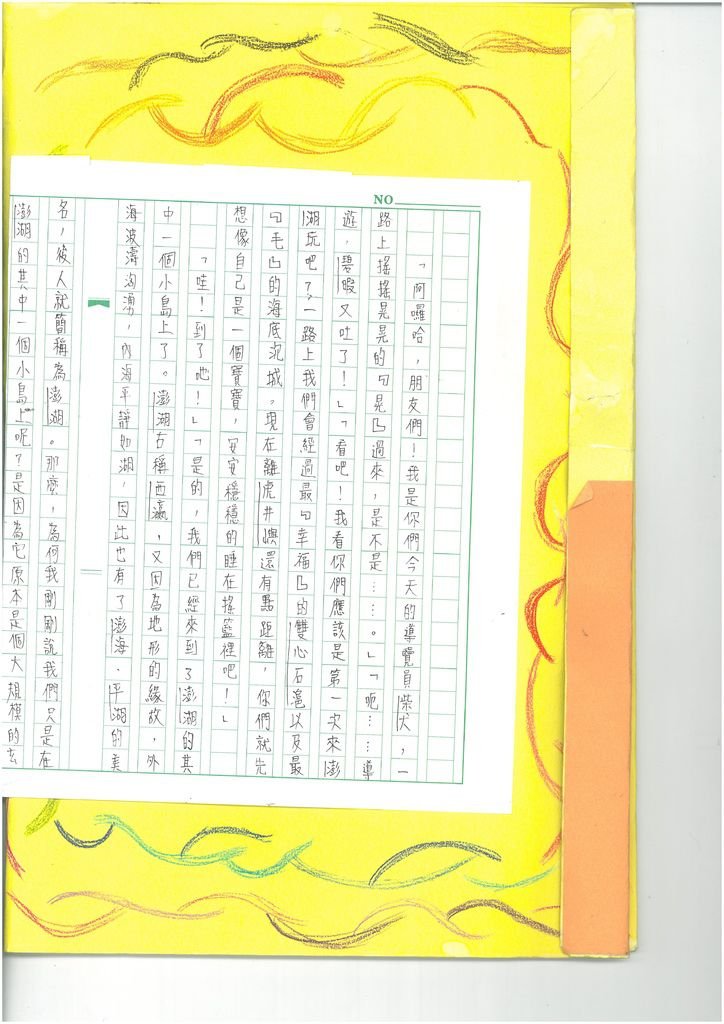 NO
「阿囉哈，朋友們！我是你們今天的導覽員柴犬，一
路上搖搖晃晃的ㄅ晃ㄩ過來，是不是……。」「呃……導
遊，碧暇又吐了！」「看吧！我看你們應該是第一次來澎
湖玩吧？，一路上我們會經過最ㄅ幸福ㄩ的雙心石滬以及最
ㄅ毛ㄩ的海底沉城，現在離虎井嶼還有點距離，你們就先
想像自己是一個寶寶，安安穩穩的睡在搖籃裡吧！」
「哇！到了吔！」「是的，我們已經來到了澎湖的其
中一個小島上了。澎湖古稱西瀛，又因為地形的緣故，外
海波濤洶湧，內海平靜如湖，因此也有了澎海、平湖的美
名，後人就簡稱為澎湖。那麼，為何我剛剛說我們只是在
澎湖的其中一個小島上呢？是因為它原本是個大規模的玄